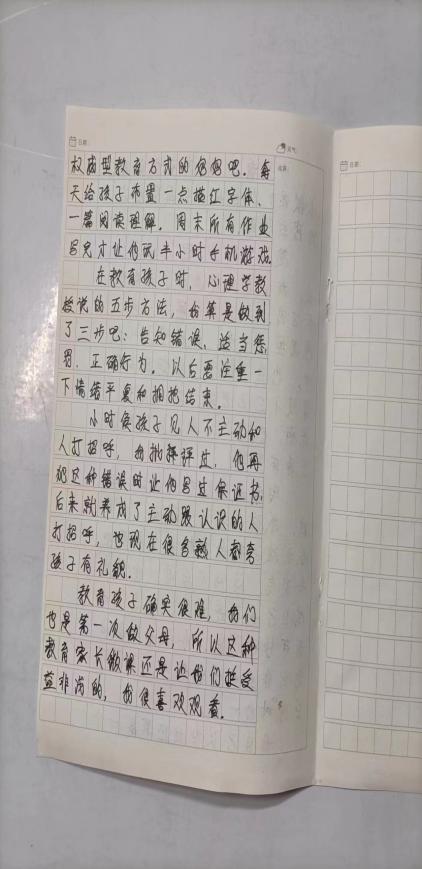 日期：
天气：
权威型教育方式的妈妈吧。每
天给孩子布置一点描红字体、
一篇阅读理解。周末所有作业
写完才让他玩半小时手机游戏。
在教育孩子时，心理学教
授说的五步方法，我算是做到
了三步吧：告知错误、适当惩
罚、正确行为。以后要注重一
下情绪平复和拥抱结束。
小时候孩子见人不主动和
人打招呼，我批评评过，他再
犯这种错误时让他写过保证书，
后来就养成了主动跟认识的人
打招呼，也现在很多熟人都夸
孩子有礼貌。
教育孩子确实很难，我们
也是第一次做父母，所以这种
教育家长微课还是让我们接受
益非浅的，我很喜欢观看。
日期：